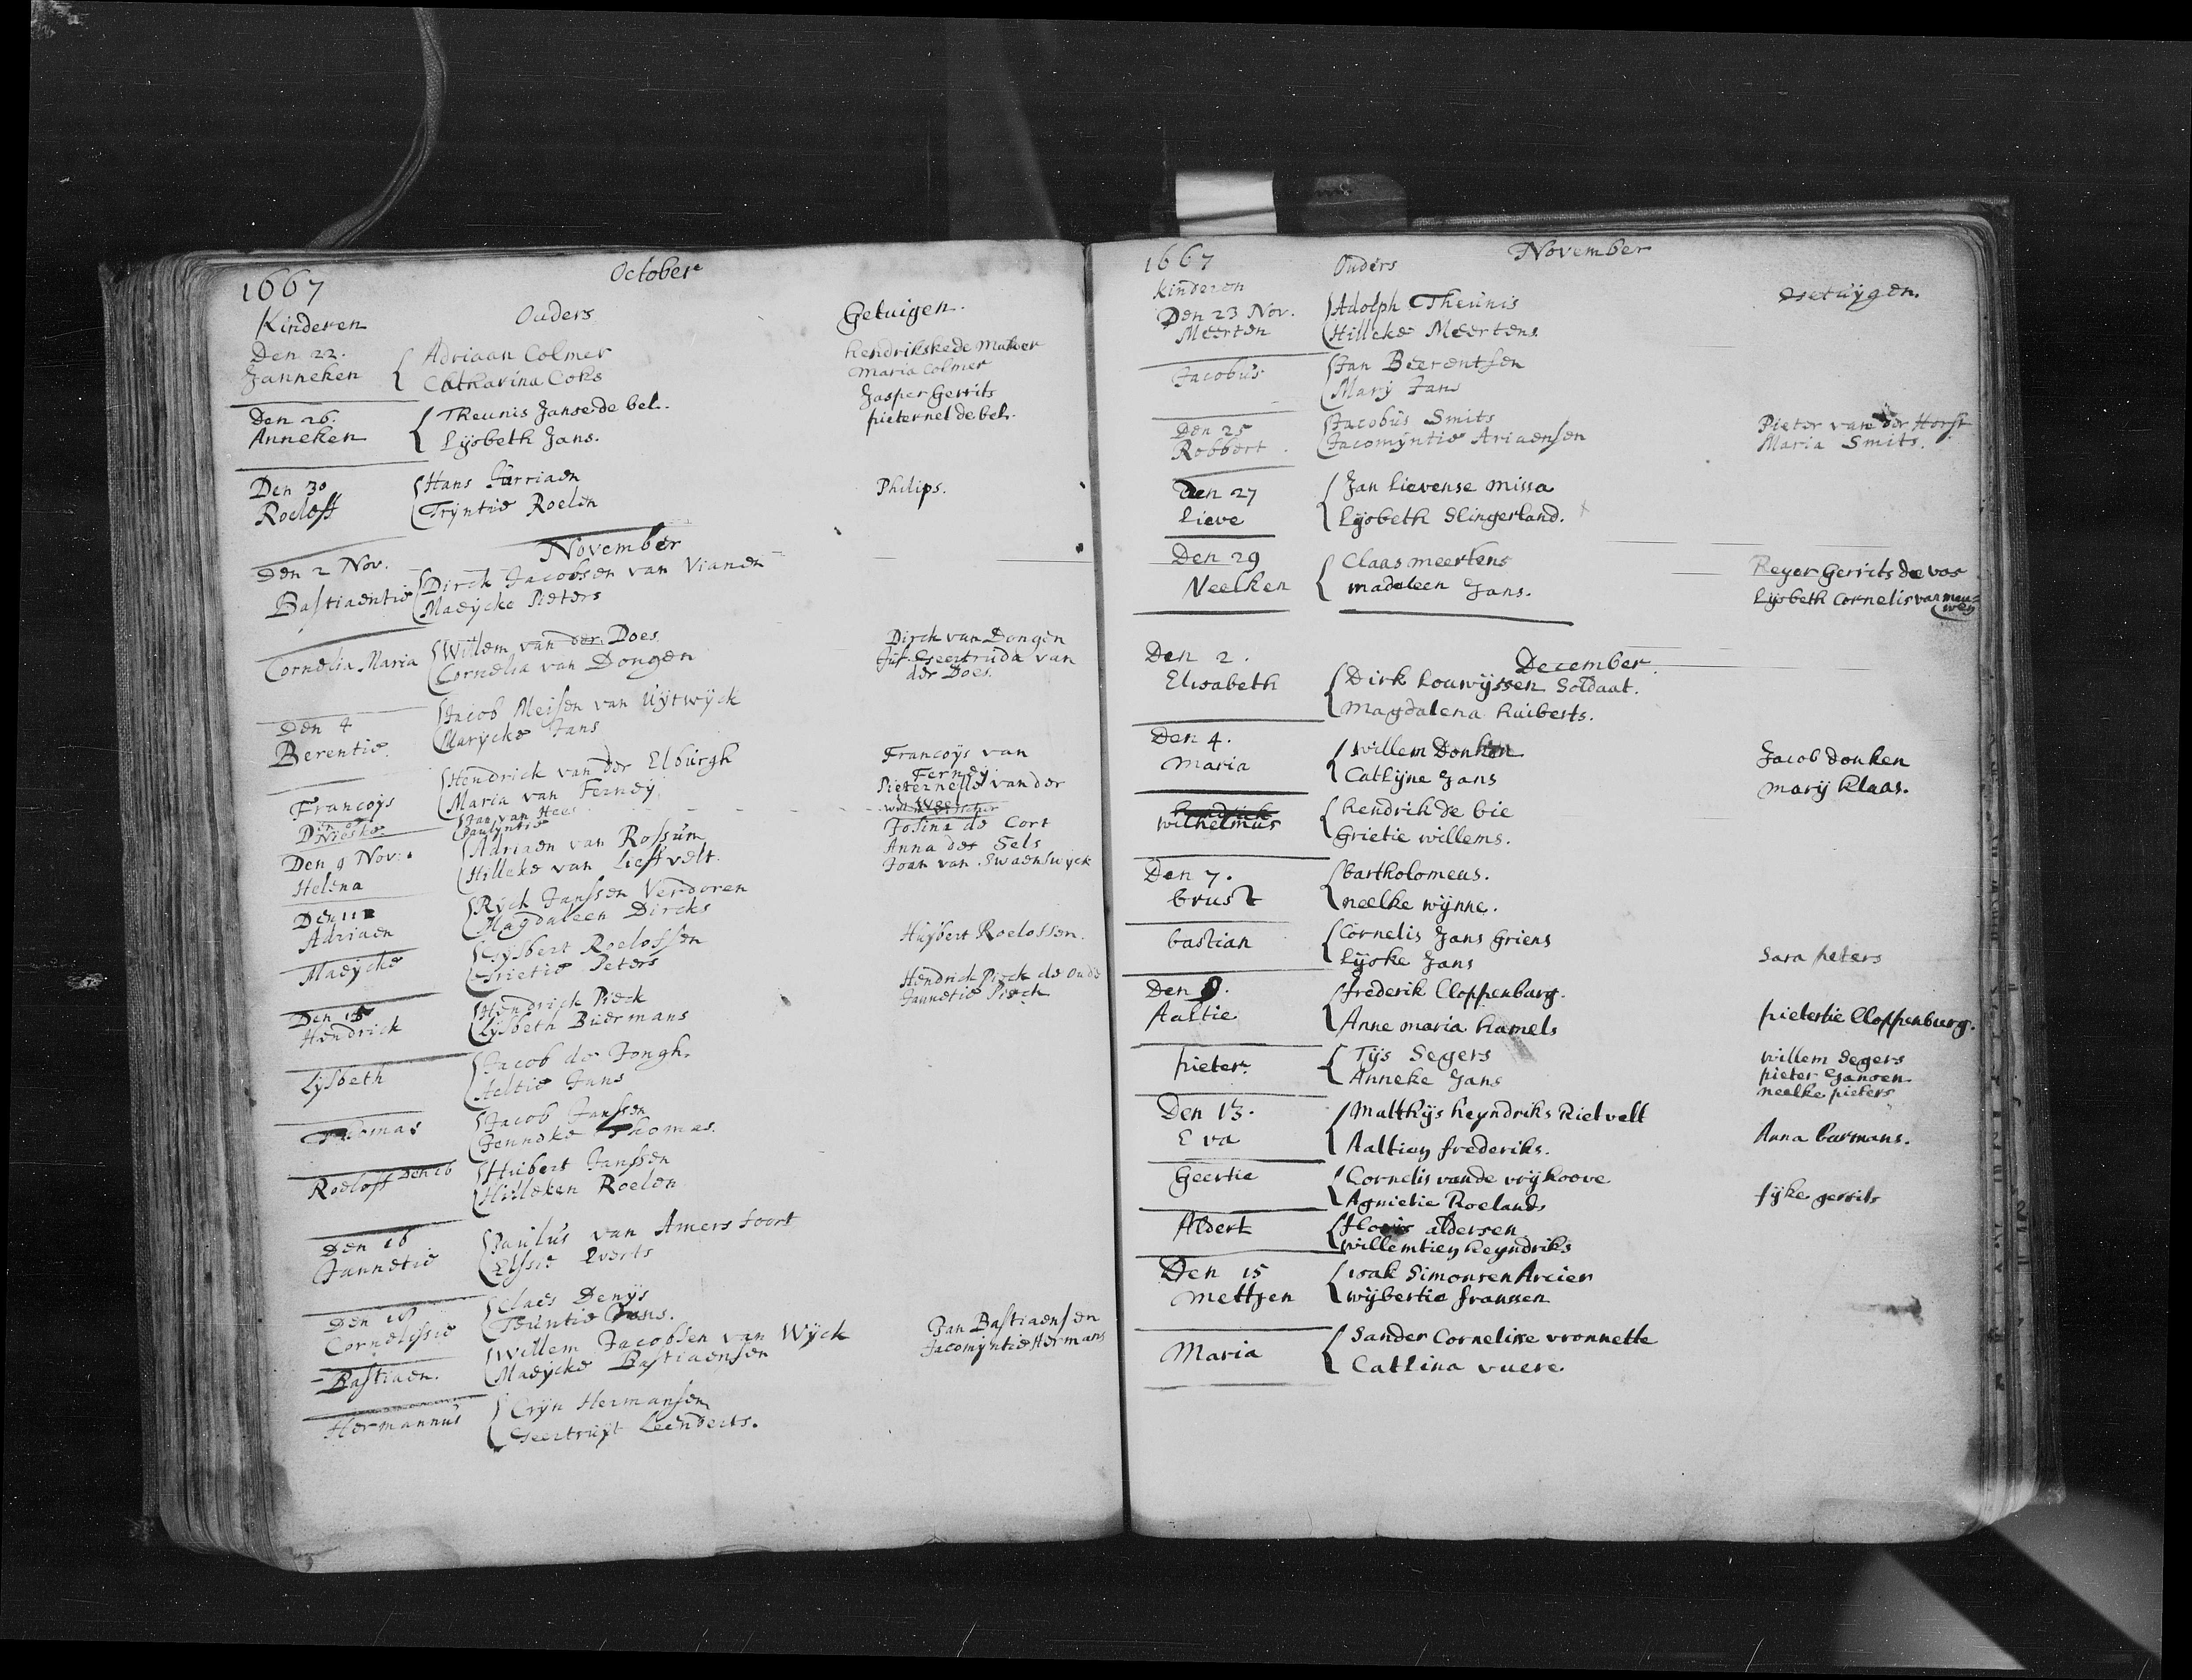 1667 October
Kinderen Ouders Getuigen.
Den 22. Adriaan Colmer
Janneken Catharina Coks Maria Colmer
Den 26. Theunis Janse de bel. Jasper Gerrits
Anneken Lysbeth Jans. pieternel de bel.
Den 30 Hans Jurriaen Philips.
Roeloff Tryntie Roelen
November
Den 2 Nov. Dirck Jacobsen van Vianen
Bastiaentie Maeycke Pieters
Cornelia Maria Willem van der Does Dirck van Dongen
Cornelia van Dongen Juf. Geertruda van
der Does.
Den 4 Jacob Meisen van Uytwyck
Berentie Marycke Jans
Francoys Hendrick van der Elburgh Francoys van
Maria van Ferney Ferney
Pieternelle van der
Jan van Hees
Den 9 Nov. Adriaen van Rossum Josina de Cort
Helena Hilleke van Lieffvelt Anna der Sels
Joan van Swaenswyck
Den 11 Ryck Janssen Verdoren
Adriaen Magdaleen Dircks
Maeycke Gysbert Roelossen Huybert Roelossen.
Grietie Peters
Den 15 Hendrick Pieck Hendrick Pieck de Oude
Hendrick Lysbeth Buermans Jannetie Pieck
Lysbeth Jacob de Jongh.
Aeltie Jans
Thomas Jacob Janssen
Jenneke Thomas.
Roeloff Den 16 Hubert Janssen
Hilleken Roelen
Den 16 Paulus van Amersfoort
Jannetie Elssie Everts
Claes Denys
Cornelissie Teuntie Jans.
Bastiaen. Willem Jacobsen van Wyck Jan Bastiaensen
Maeycke Bastiaensen Jacomyntie Hermans
Hermannus Cryn Hermansen
Geertruyt Leenderts.
1667 Ouders November
Kinderen Getuygen.
Den 23 Nov. Adolph Theunis
Meerten Hilleke Meertens
Jacobus Jan Beerentsen
Mary Jans
Den 25 Jacobus Smits Pieter van der Horst
Robbert Jacomyntie Ariaensen Maria Smits.
Den 27 Jan Lievense missa
Lieve Lysbeth Slingerland.
Den 29 Claas meertens Reyer Gerrits de vos
Neelken madaleen Jans. Lysbeth Cornelis van
December
Den 2. Dirk Louwyssen Soldaat.
Elisabeth Magdalena huiberts.
Den 4. Willem Donken Jacob donken
Maria Catlyne Jans mary klaas.
wilhelmus hendrik de bie
Grietie willems.
Den 7. bartholomeus.
brust neelke wynne.
bastian Cornelis Jans Griens
Lyske Jans Sara peters
Den 9. frederik Cloppenburg.
Aaltie Anne maria hamels pietertie Cloppenburg.
pieter Tys Segers willem Segers
Anneke Jans pieter Jansen
neelke pieters
Den 13. Matthys heyndriks Rietvelt
Eva Aaltien frederiks. Anna burmans.
Geertie Cornelis vande vryhoove
Agnietie Roelands fyke gerrits
Aldert floris aldersen
willemtien heyndriks
Den 15 Isak Simonsen Arcier
Mettjen wybertie franssen
Maria Sander Cornelisse vronnette
Catlina vuere